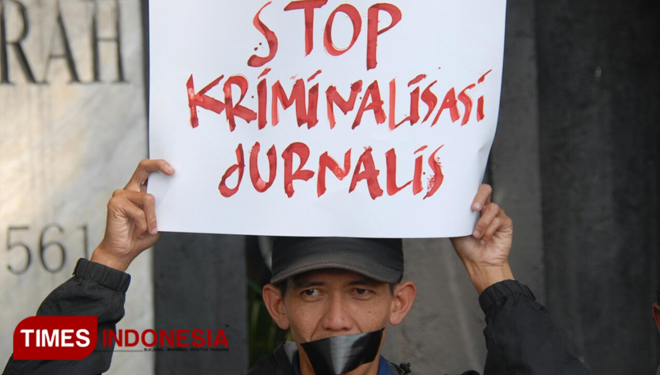 RAH
STOP
KRIMINALISASI
JURNALIS
561
TIMES INDONESIA